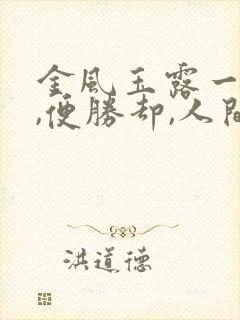 金風玉露一
,便勝却,人間
洪道德